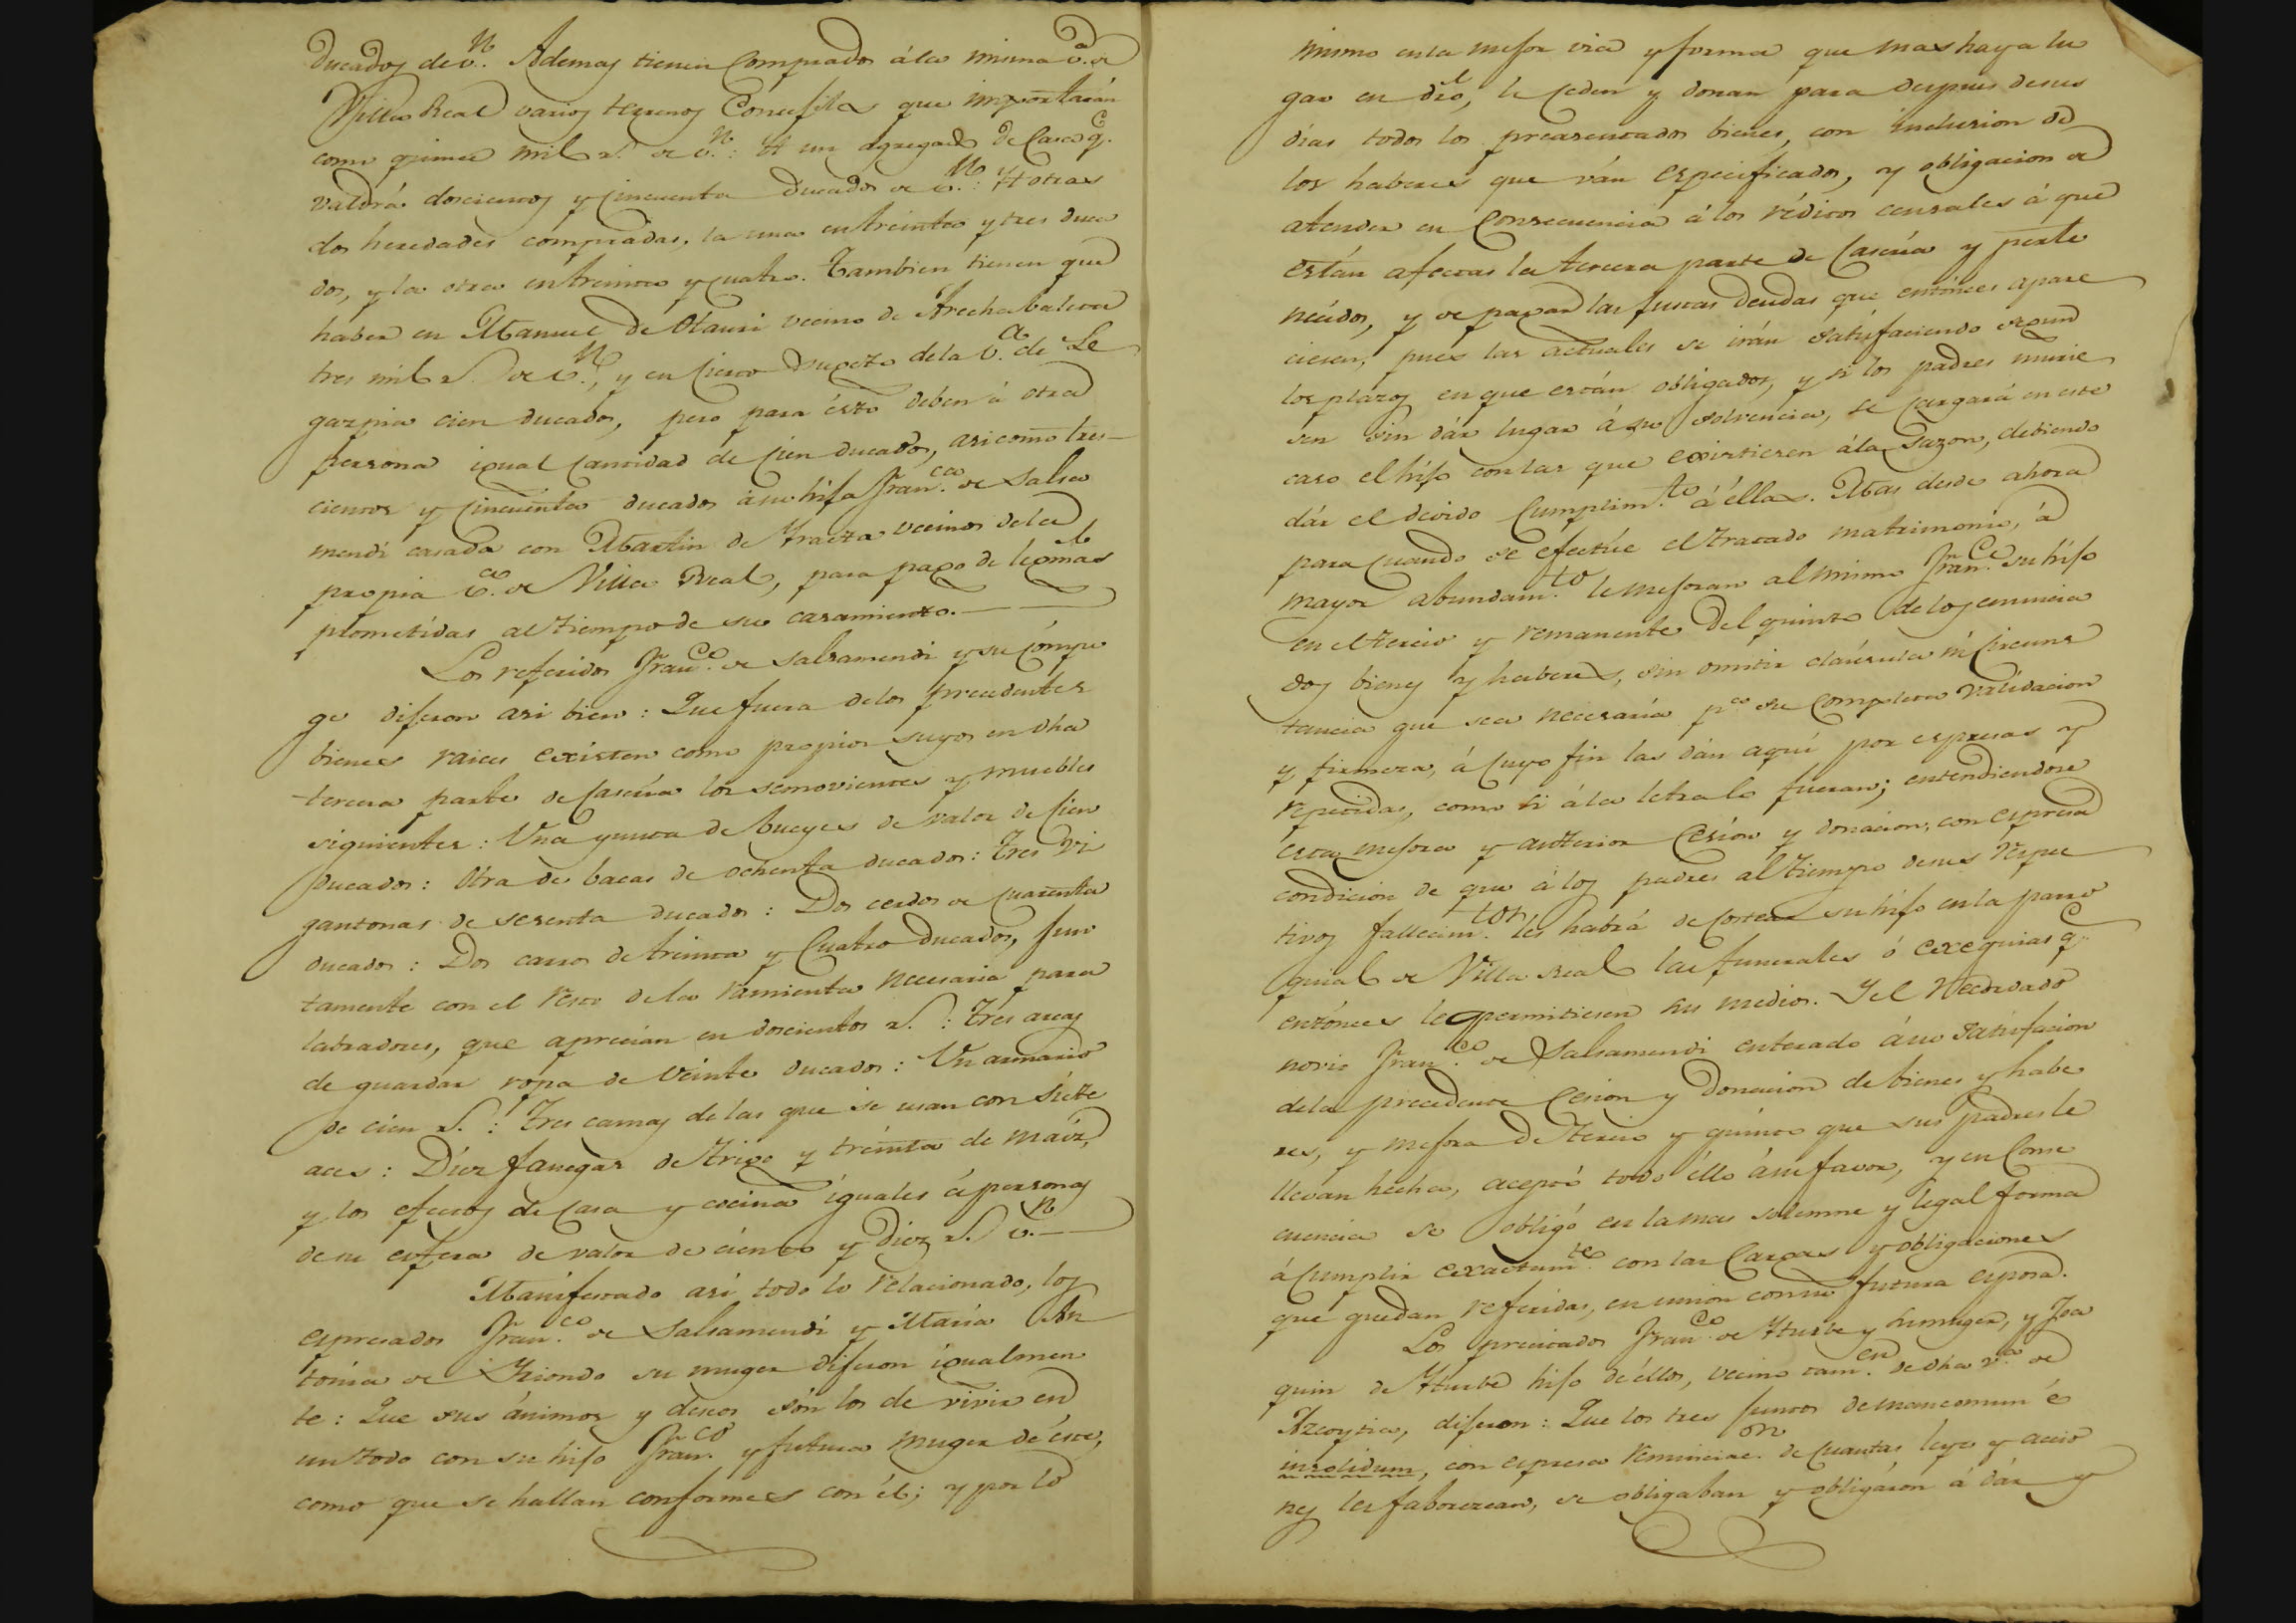 ducados de v.n Ademas tienen comprados á la misma v.a de
Villa Real varios terrenos Concejiles que importarán
como quince mil r.s de v.n: It un agregado de Casa q.e
valdrá doscientos y cincuenta ducados de v.n: Y otras
dos heredades compradas, la una en treinta y tres duca
dos, y la otra en treinta y quatro. Tambien tienen que
haber en Manuel de Olauri vecino de Arechabaleta
tres mil r.s de v.n, y en cierto sugeto de la v.a de Le
gazpia cien ducados, pero para ésto deben á otra
persona igual cantidad de cien ducados, asi como tres-
cientos y cincuenta ducados á su hija Fran.ca de Salsa
mendi casada con Martin de Yraeta vecinos de la
propia v.a de Villa Real, para pago de lexmas
prometidas al tiempo de su casamiento.
Los referidos Fran.co de Salsamendi y su cónyu
ge dijeron asi bien: Que fuera de los precedentes
bienes raices existen como propios suyos en dha
tercera parte de Casería los semovientes y muebles
siguientes: Una yunta de bueyes de valor de cien
ducados: Otra de bacas de ochenta ducados: Tres vi
gantonas de sesenta ducados: Dos cerdos de quarenta
ducados: Dos carros de treinta y quatro ducados, jun
tamente con el resto de la ramienta necesaria para
labradores, que aprecian en doscientos r.s: Tres arcas
de guardar ropa de veinte ducados: Un armario
de cien r.s: Tres camas de las que se usan con siete
aces: Diez fanegas de trigo y treinta de maiz,
y los efectos de casa y cocina iguales á personas
de su esfera de valor de ciento y diez r.s v.n
Manifestado asi todo lo relacionado, los
espresados Fran.co de Salsamendi y Maria An
tonia de Yriondo su muger dijeron igualmen
te: Que sus ánimos y deseos són los de vivir en
un todo con su hijo Fran.co y futura muger de éste,
como que se hallan conformes con él; y por lo
mismo en la mejor via y forma que mas haya lu
gar en dro, le ceden y donan para despues de sus
dias todos los preasentados bienes, con inclusion de
los haberes que ván especificados, y obligacion de
atender en consecuencia á los réditos censales á que
están afectas la tercera parte de Casería y perte
necidos, y de pagar las justas deudas que entónces apare
ciesen, pues las actuales se irán satisfaciendo segun
los plazos en que están obligados, y si los padres murie
sen sin dár lugar á su solvencia, se cargará en este
caso el hijo con las que existiesen á la sazon, debiendo
dár el devido cumplim.to á ellas. Mas desde ahora
para quando se efectúe el tratado matrimonio, á
mayor abundam.to le mejoran al mismo Fran.co su hijo
en el tercio y remanente del quinto de los enuncia
dos bienes y haberes, sin omitir cláusula ni circuns
tancia que sea necesaria p.a su completa validacion
y firmeza, á cuyo fin las dán aquí por espresas y
repetidas, como si á la letra lo fueran; entendiendose
esta mejora y anterior Cesion y donacion, con espresa
condicion de que á los padres al tiempo de sus respec
tivos fallecim.tos les habrá de costear su hijo en la parro
quial de Villa Real las funerales ó exequias q.e
entónces le permitiesen sus medios. Y el recordado
novio Fran.co de Salsamendi enterado á su satisfacion
de la precedente Cesion y Donacion de bienes y habe
res, y mejora de tercio y quinto que sus padres le
llevan hecha, aceptó todo éllo á su favor, y en Conse
cuencia se obligó en la mas solemne y legal forma
á cumplir exactam.te con las Cargas y obligaciones
que quedan referidas, en union con su futura esposa.
Los precitados Fran.co de Yturbe y su muger, y Joa
quin de Yturbe hijo de éllos, vecino tam.en de dha v.a de
Azcoytia, dijeron: Que los tres juntos de mancomun é
insolidum, con espresa renunciac.on de quantas leyes y accio
nes les faborezcan, se obligaban y obligáron á dár y